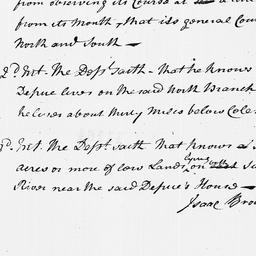 from observing its Course at
from its Mouth, that its general Cour
North and South —
2d. Int. The Dept. saith - That he knows
Depue lives on the said North Branch
he lives about thirty Miles below Cole
3d. Int. The Dept saith that knows
acres or more of low Lands lying on
River near the said Depue's House —
Isaac Bro